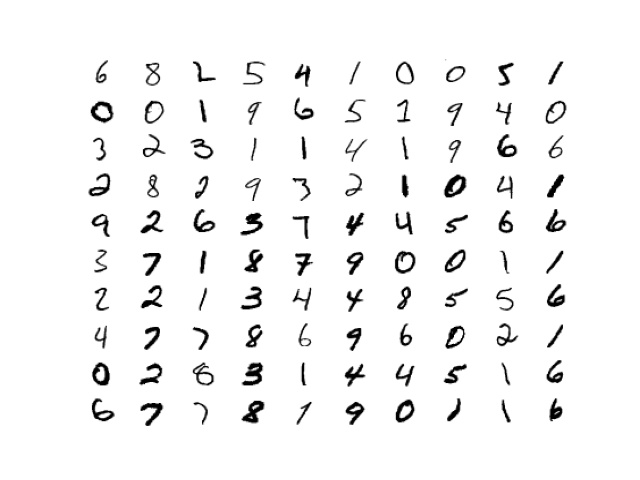 6 8 2 5 4 1 0 0 5 1
0 0 1 9 6 5 1 9 4 0
3 2 3 1 1 4 1 9 6 6
2 8 2 9 3 2 1 0 4 1
9 2 6 3 7 4 4 5 6 6
3 7 1 8 7 9 0 0 1 1
2 2 1 3 4 4 8 5 5 6
4 7 7 8 6 9 6 0 2 1
0 2 8 3 1 4 4 5 1 6
6 7 7 8 1 9 0 1 1 6